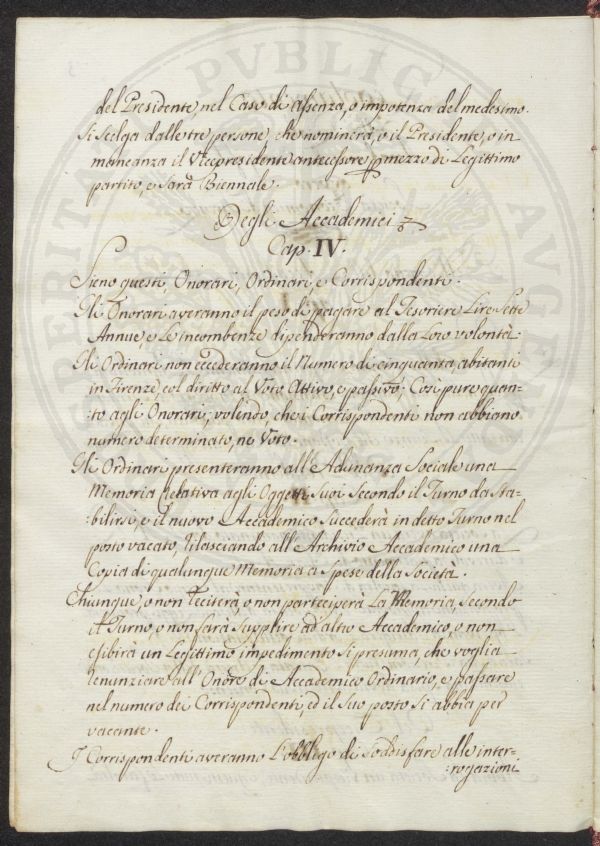 del Presidente, nel Caso di assenza, o impotenza del medesimo.
Si Scelga dalle tre persone, che nominerà, o il Presidente, o in
mancanza il Vicepresidente antecessore p mezzo di Legittimo
partito, e Sarà Biennale.
Degli Accademici
Cap. IV.
Sieno questi, Onorari, Ordinari, e Corrispondenti.
Gli Onorari averanno il peso di pagare al Tesoriere Lire Sette
Annue, e Le incombenze dipenderanno dalla Loro volontà.
Gli Ordinari non eccederanno il Numero di cinquanta, abitanti
in Firenze, col diritto al Voto Attivo, e passivo; Così pure quan-
:to agli Onorari; volendo, che i Corrispondenti non abbiano
numero determinato, ne Voto.
Gli Ordinari presenteranno all'Adunanza Sociale una
Memoria relativa agli Oggetti Suoi Secondo il Turno da Sta-
:bilirsi, e il nuovo Accademico Succederà in detto Turno nel
posto vacato, rilasciando all'Archivio Accademico una
Copia di qualunque Memoria a Spese della Società.
Chiunque, o non reciterà, o non parteciperà La Memoria, Secondo
il Turno, o non farà Supplire ad'altro Accademico, o non
esibirà un Legittimo impedimento Si presuma, che voglia
renunziare all'Onore di Accademico Ordinario, e passare
nel numero dei Corrispondenti, ed il Suo posto Si abbia per
vacante.
I Corrispondenti averanno L'obbligo di Soddisfare alle inter-
:rogazioni
PVBLIC
AVGENDO